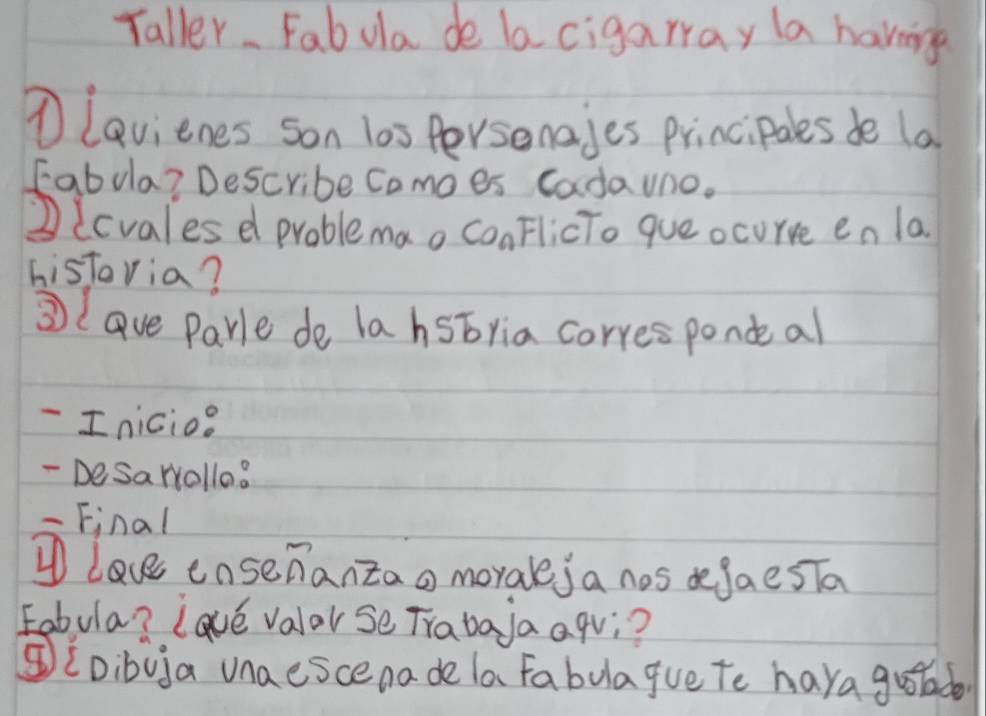 Taller - Fabula de la cigarra y la harmiga
① ¿Quienes son los Personajes Principales de la
Fabula? Describe como es cada uno.
② ¿cuales el problema o conflicto que ocurre en la
historia?
③ ¿Que Parle de la hstoria corresponde al
- Inicio:
- Desarrollo:
- Final
④ ¿Que enseñanza o moraleja nos deja esta
Fabula? ¿qué valor se Trabaja aqui?
⑤ ¿Dibuja una escena de la Fabula que Te haya gustado.